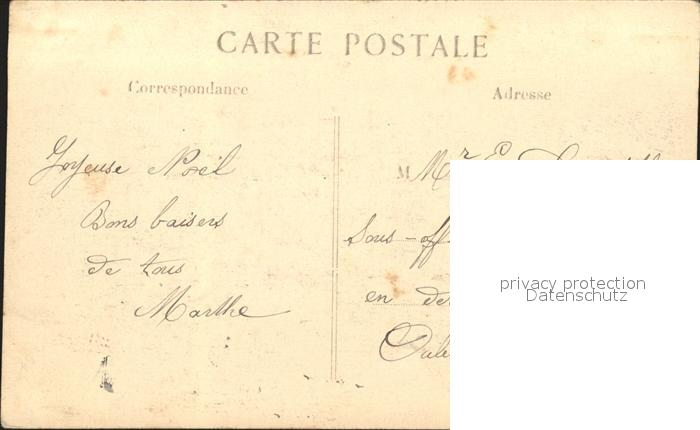 CARTE POSTALE
Correspondance
Adresse
Joyeuse Noël
Bons baisers
de tous
Marthe
M Mr E.
Sous-off
en
privacy protection
Datenschutz